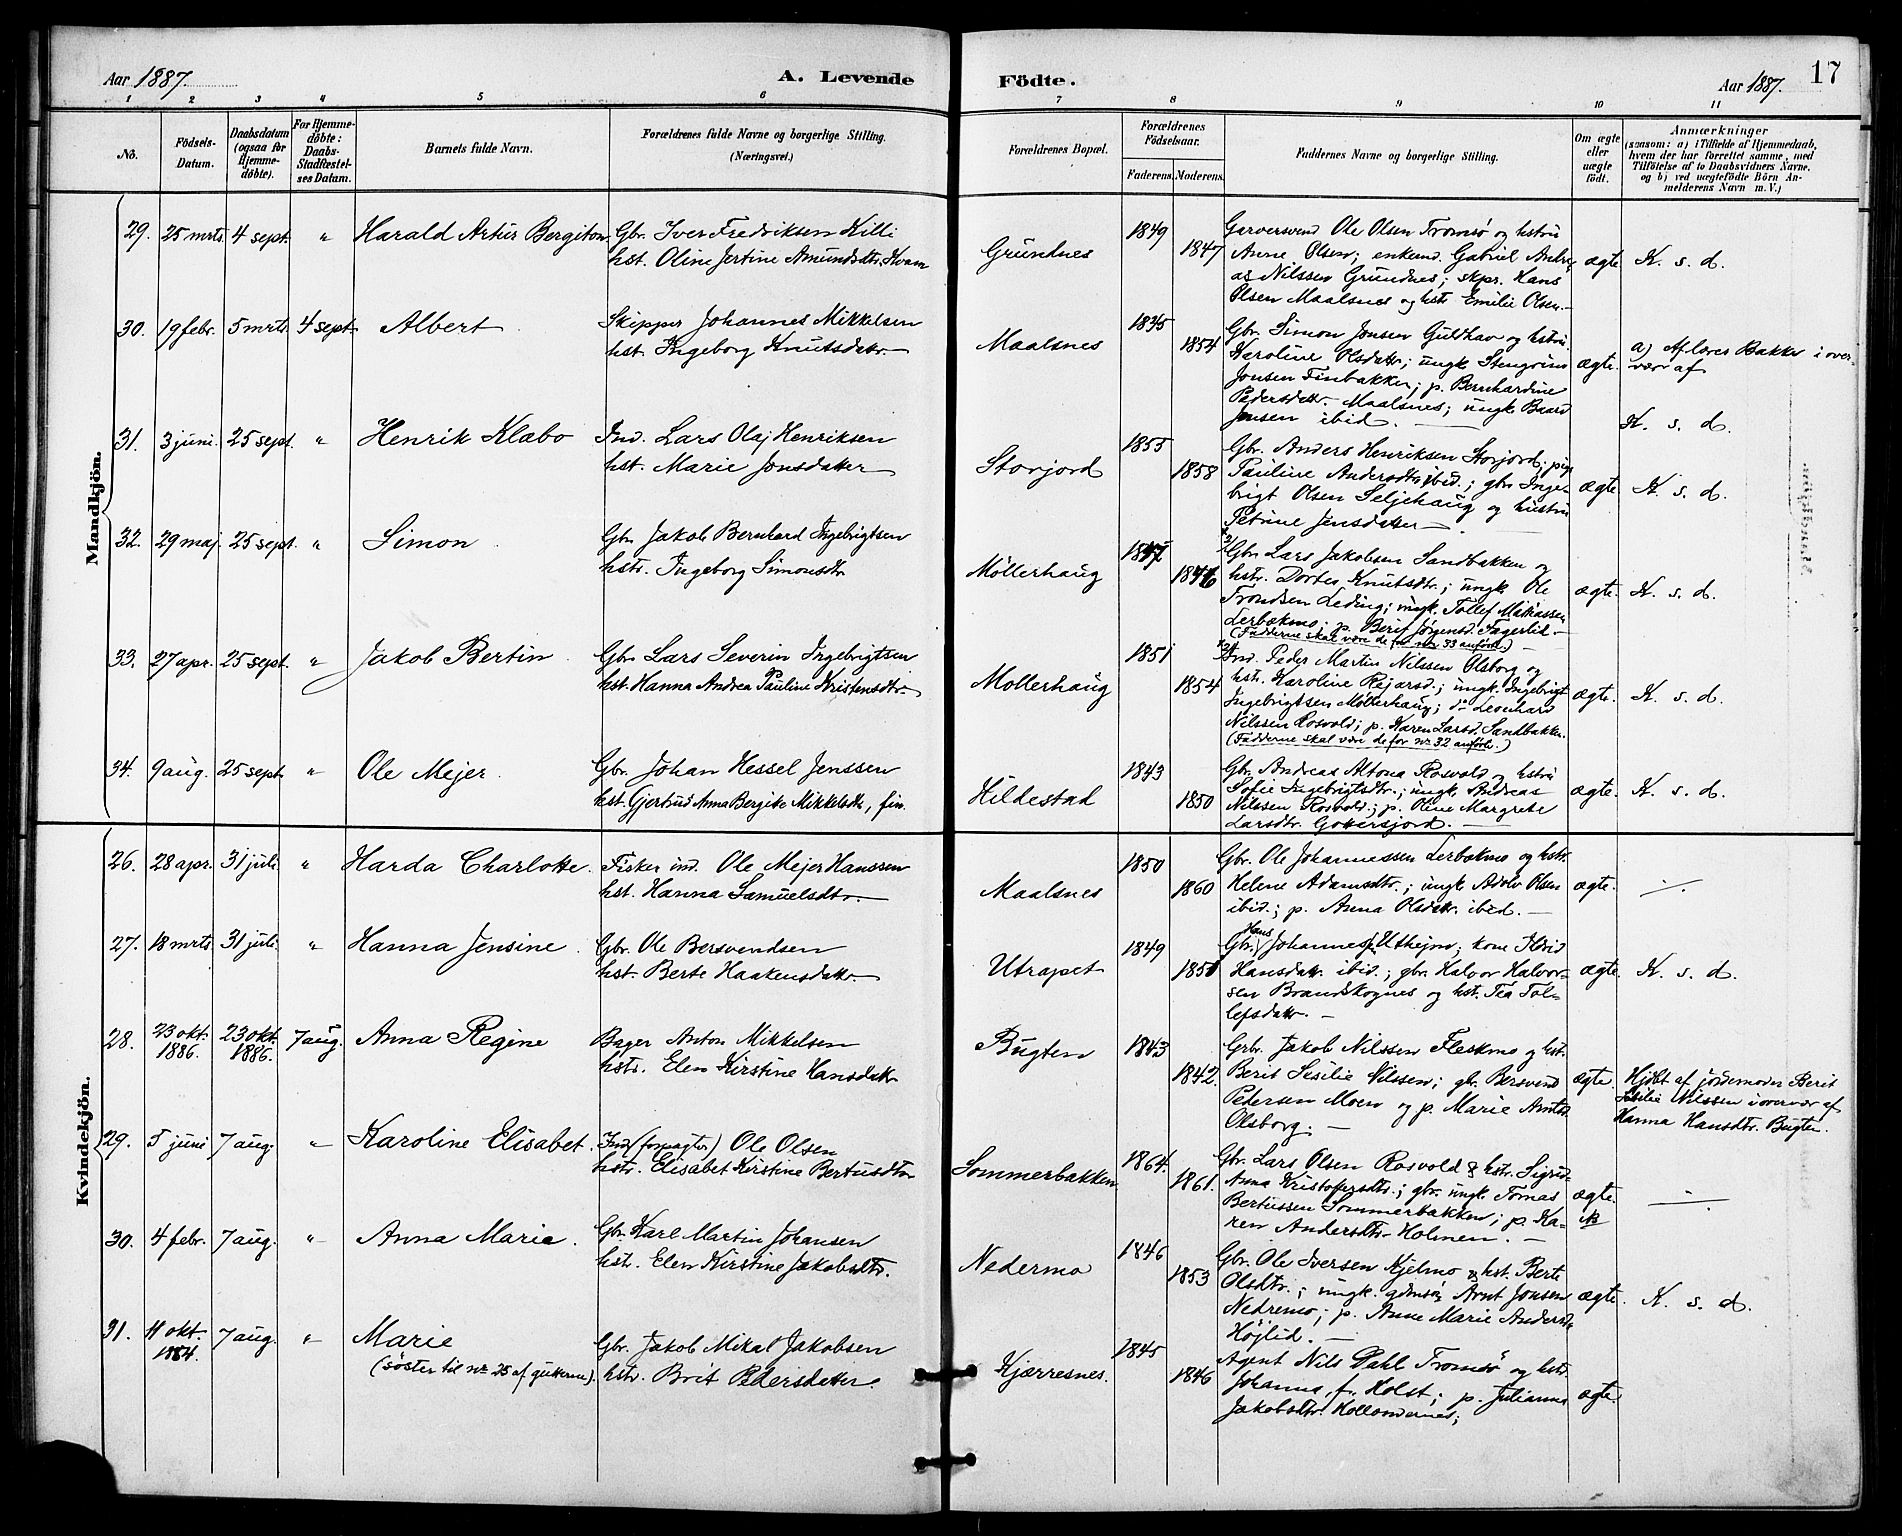 Aar 1887.
A. Levende Födte.
Aar 1887. 17
1 2 3 4 5 6 7 8 9 10 11
No.
Födsels-Datum.
Daabsdatum (ogsaa for Hjemmedöbte).
For Hjemmedöbte: Daabs-Stadfæstelses Datum.
Barnets fulde Navn.
Forældrenes fulde Navne og borgerlige Stilling. (Næringsvei.)
Forældrenes Bopæl.
Forældrenes Födselsaar.
Faderens. Moderens.
Faddernes Navne og borgerlige Stilling.
Om ægte eller uægte födt.
Anmærkninger
(saasom: a) i Tilfælde af Hjemmedaab,
hvem der har forrettet samme, med
Tilföielse af to Daabsvidners Navne,
og b) ved uægtefödte Börn Anmelderens Navn m. V.)
Mandkjön.
29. 25 mrts. 4 sept. " Harald Artur Bergiton
Gbr. Iver Fredriksen Killi
hst. Oline Jertine Amundsdtr. Kvam
Grundnes 1849 1847
Garversvend Ole Olsen Tromsø og hstru
Anne Olsen; enkemd. Gabriel Andre-
as Nilssen Grundnes; skpr. Hans
Olsen Maalsnes og hstr. Emilie Olsen.—
ægte K. s. d.
30. 19 febr. 5 mrts. 4 sept. Albert
Skipper Johannes Mikkelsen
hst. Ingeborg Knutsdatr.—
Maalsnes 1835 1854
Gbr. Simon Jonsen Gulhav og hstru
Karoline Olsdatr; ungk. Stengrim
Jonsen Finbakken; p. Bernhardine
Pedersdatr. Maalsnes; ungk. Baard
Jensen ibid.
ægte. a) Af lærer Bakke i over-
vær af
K. s. d.
31. 3 juni. 25 sept. " Henrik Klæbo
Ind. Lars Olaj Henriksen
hst. Marie Jonsdatter
Storjord 1855 1858
Gbr. Anders Henriksen Storjord; pige
Pauline Andersdtr ibid.; gbr. Inge-
brigt Olsen Seljehaug og hustru
Petrine Jensdatter —
ægte K. s. d.
32. 29 maj. 25 sept. " Simon
Gbr. Jakob Bernhard Ingebrigtsen
hstr. Ingeborg Simonsdtr
Möllerhaug 1847 1846
Gbr. Lars Jakobsen Sandbakken og
hstr. Dortea Knutsdtr.; ungk. Ole
Trondsen Leding; ungk. Tollef Mathiassen
Lerbækmo; p. Berit Jørgensd. Fagerlid.—
(Fadderne skal være de for nr. 33 anförte.)
ægte. K. s. d.
33. 27 apr. 25 sept. " Jakob Bertin
Gbr. Lars Severin Ingebrigtsen
hst. Hanna Andrea Pauline Kristensdtr.
Möllerhaug 1851 1854
Ind. Peder Martin Nilssen Olsborg og
hst. Karoline Rejarsd.; ungk. Ingebrigt
Ingebrigtsen Möllerhaug; do Leonhard
Nilssen Rosvold; p. Karen Larsd. Sandbakken.
(Fadderne skal være de for nr. 32 anförte.)
ægte. K. s. d.
34. 9 aug. 25 sept. " Ole Mejer
Gbr. Johan Hessel Jenssen
hst. Gjertrud Anna Bergite Mikkelsdtr., fin.
Hildestad 1843 1850
Gbr. Andreas Altona Rosvold og hstru
Sofie Ingebrigtsdtr.; ungk. Andreas
Nilssen Rosvold; p. Oline Margrete
Larsdtr. Gottersjord.
ægte. K. s. d.
Kvindekjön.
26. 28 apr. 31 juli. " Harda Charlotte.
Fisker ind. Ole Mejer Hanssen
hst. Hanna Samuelsdtr.
Maalsnes 1850 1860
Gbr. Ole Johannessen Lerbækmo og hstr.
Helene Adamsdtr.; ungk. Adolv Olsen
ibid.; p. Anna Olsdatr. ibid.—
ægte.
27. 18 mrts 31 juli. " Hanna Jensine
Gbr. Ole Bersvendsen
hst. Berte Haakensdatr.
Utrapet 1849 1851
Gbr. Hans Johannes. Uthejm; kone Ildrid
Hansdatr. ibid.; gbr. Halvor Halvor-
sen Brandskognes og hst. Tea Tol-
lefsdatr. —
ægte. K. s. d.
28. 23 okt. 1886. 23 okt. 1886. 7 aug. Anna Regine
Bager Anton Mikkelsen
hstr. Elen Kirstine Hansdatr
Bugten 1843 1842.
Grbr. Jakob Nilssen Fleskmo og hst.
Berit Sesilie Nilssen; gbr. Bersvend
Pedersen Moen og p. Marie Arntsd.
Olsborg.—
ægte. Hjdbt af jordemoder Berit
Sesilie Nilssen i overvær af
Hanna Hansdtr. Bugten.
29. 5 juni 7 aug. " Karoline Elisabet.
Ind. (forpagter) Ole Olsen
hstr. Elisabet Kirstine Bertusdtr
Sommerbakken 1864. 1861.
Gbr. Lars Olsen Rosvold & hstr. Sigrid
Anna Kristofersdtr.; gbr. ungk. Tomas
Bertussen Sommerbakken; p. Ka-
ren Andersdtr. Holmen.—
ægte.
30. 4 febr. 7 aug. " Anna Marie.
Gbr. Karl Martin Johansen
hst. Elen Kirstine Jakobsdtr.
Nedermo 1846 1853
Gbr. Ole Iversen Hjelmo & hst. Berte
Olsdtr.; ungk. gdmsön Arnt Jonsen
Nedremo; p. Anne Marie Andersd.
Højlid. —
ægte. K. s. d.
31. 11 okt. 1884. 7 aug. " Marie
(søster til nr. 25 af gutterne).
Gbr. Jakob Mikal Jakobsen
hstr. Brit Pedersdatter.
Kjærresnes. 1845 1846
Agent Nils Dahl Tromsø og hstr.
Johanna, f. Holst; p. Julianna
Jakobsdtr. Hollendernes;
ægte.